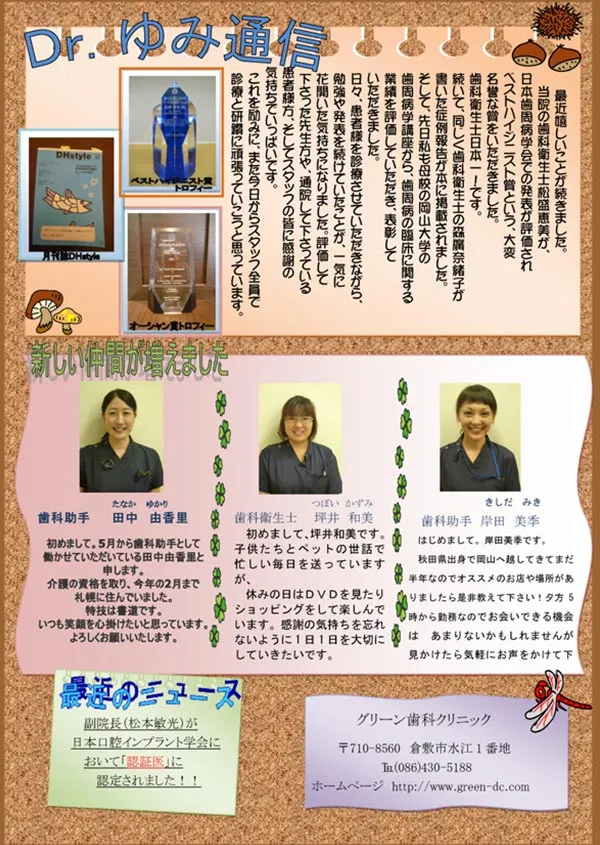 Dr. ゆみ通信
最近嬉しいことが続きました。
当院の歯科衛生士松盛恵美が、
日本歯周病学会での発表が評価され
ベストハイジニスト賞という、大変
名誉な賞をいただきました。
歯科衛生士日本一!です。
続いて、同じく歯科衛生士の森廣奈緒子が
書いた症例報告が本に掲載されました。
そして、先日私も母校の岡山大学の
歯周病学講座から、歯周病の臨床に関する
業績を評価していただき、表彰して
いただきました。
日々、患者様を診療させていただきながら、
勉強や発表を続けていたことが、一気に
花開いた気持ちになりました。評価して
下さった先生方や、通院して下さっている
患者様方、そしてスタッフの皆に感謝の
気持ちでいっぱいです。
これを励みに、また今日からスタッフ全員で
診療と研鑽に頑張っていこうと思っています。
ベストハイジニスト賞
トロフィー
DHstyle
月刊誌DHstyle
オーシャン賞トロフィー
新しい仲間が増えました
たなか ゆかり
歯科助手 田中 由香里
初めまして。5月から歯科助手として
働かせていただいている田中由香里と
申します。
介護の資格を取り、今年の2月まで
札幌に住んでいました。
特技は書道です。
いつも笑顔を心掛けたいと思っています。
よろしくお願いいたします。
つぼい かずみ
歯科衛生士 坪井 和美
初めまして、坪井和美です。
子供たちとペットの世話で
忙しい毎日を送っています
が、
休みの日はDVDを見たり
ショッピングをして楽しんで
います。感謝の気持ちを忘れ
ないように1日1日を大切に
していきたいです。
きしだ みき
歯科助手 岸田 美季
はじめまして。岸田美季です。
秋田県出身で岡山へ越してきてまだ
半年なのでオススメのお店や場所があ
りましたら是非教えて下さい!夕方5
時から勤務なのでお会いできる機会
は あまりないかもしれませんが
見かけたら気軽にお声をかけて下
最近のニュース
副院長(松本敏光)が
日本口腔インプラント学会に
おいて「認証医」に
認定されました!!
グリーン歯科クリニック
〒710-8560 倉敷市水江1番地
℡(086)430-5188
ホームページ http://www.green-dc.com